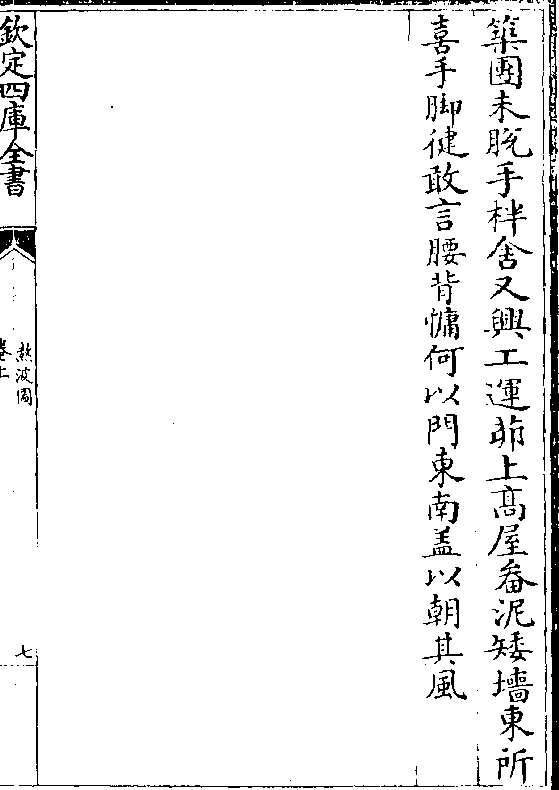 築團未脫手柈舍又興工運茆上高屋畚泥矮墻東所
喜手脚徤敢言腰背慵何以門東南盖以朝其風
欽定四庫全書
熬波圖
卷上
七